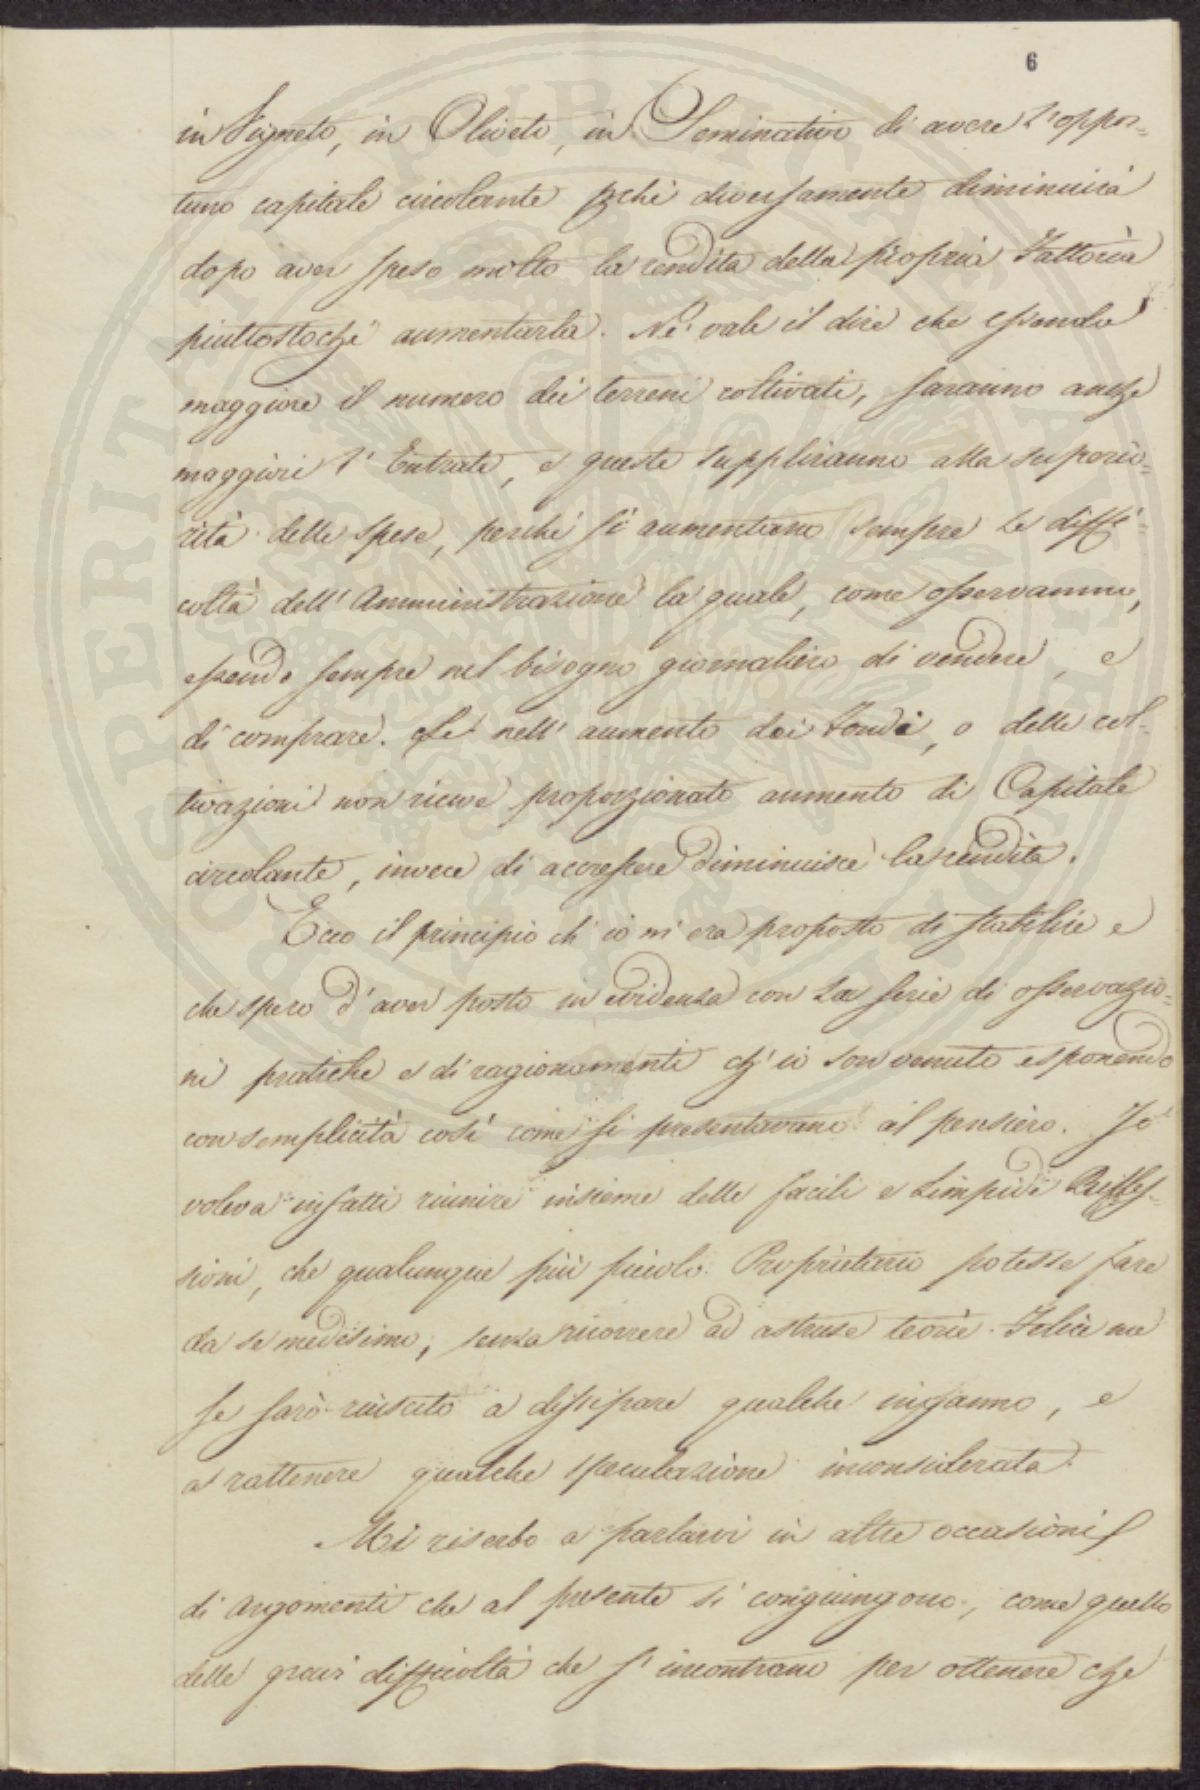 6
in Vigneto, in Oliveto, in Seminativo di avere l'oppor=
tuno capitale circolante pchè diversamente diminuirà
dopo aver speso molto la rendita della propria Fattoria
piuttostochè aumentarla. Nè vale il dire che essendo
maggiore il numero dei terreni coltivati, saranno anche
maggiori l'Entrate, e queste suppliranno alla superio=
rità delle spese, perchè si aumentano sempre le diffi=
coltà dell'Amministrazione la quale, come osservammo,
essendo sempre nel bisogno giornaliero di vendere, e
di comprare. Se nell'aumento dei Fondi, o delle col=
tivazioni non riceve proporzionato aumento di Capitale
circolante, invece di accrescere diminuisce la rendita.
Ecco il principio ch'io mi era proposto di stabilire e
che spero d'aver posto in evidenza con la serie di osservazio=
ni pratiche e di ragionamenti ch'io son venuto esponendo
con semplicità così come si presentavano al pensiero. Io
voleva infatti riunire insieme delle facili e limpide Rifles=
sioni, che qualunque più piccolo Proprietario potesse fare
da se medesimo, senza ricorrere ad astruse teorie. Felice me
se sarò riuscito a dissipare qualche inganno, e
a rattenere qualche speculazione inconsiderata.
Mi riserbo a parlarvi in altre occasioni
di Argomenti che al presente si congiungono, come quello
delle gravi difficoltà che s'incontrano per ottenere che
PUBLICAE PROSPERITATI AUGENDAE